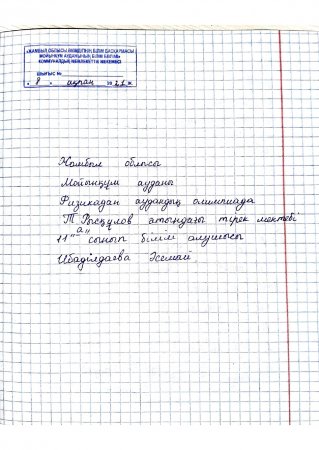 «ЖАМБЫЛ ОБЛЫСЫ ӘКІМДІГІНІҢ БІЛІМ БАСҚАРМАСЫ
МОЙЫНҚҰМ АУДАНЫНЫҢ БІЛІМ БӨЛІМІ»
КОММУНАЛДЫҚ МЕМЛЕКЕТТІК МЕКЕМЕСІ
ШЫҒЫС №
« 8 » ақпан 20 ж.
Жамбыл облысы
Мойынқұм ауданы
Физикадан аудандық олимпиада
Т. Рысқұлов атындағы тірек мектебі
11 "а" сынып білім алушысы
Ибаділдаева Әсемай